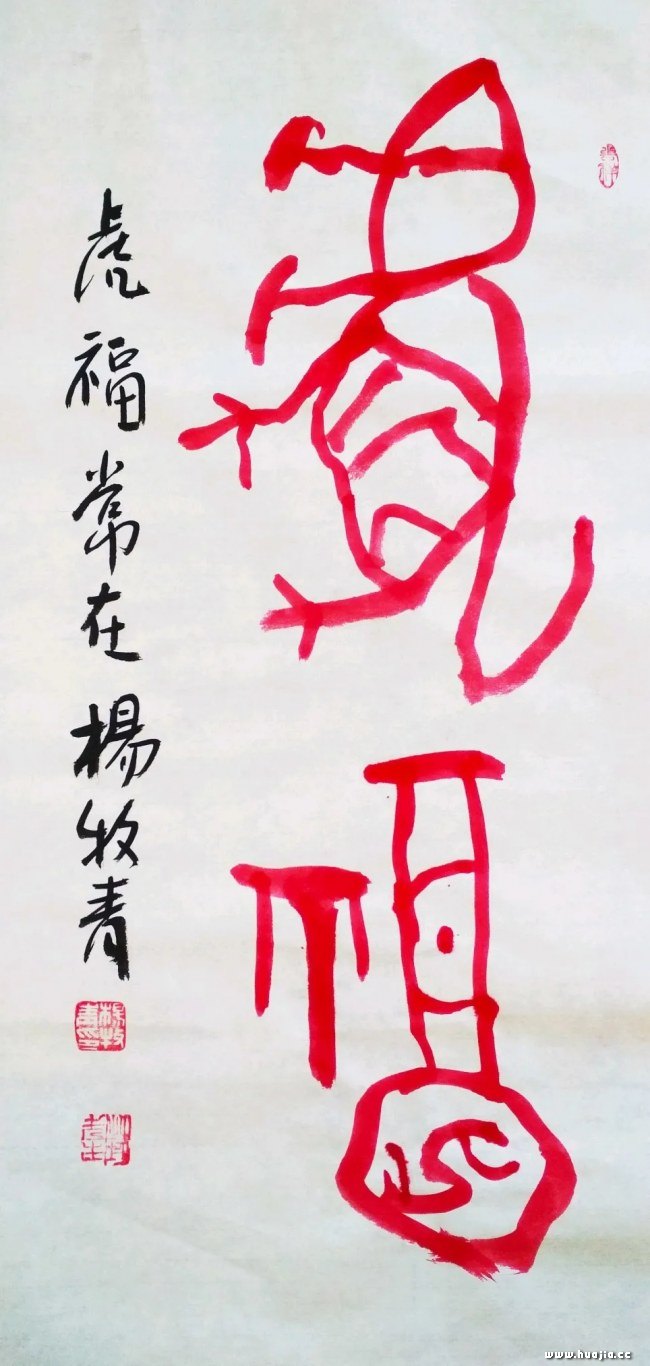 虎福
虎福常在 楊牧青
楊牧青印
www.huajia.cc